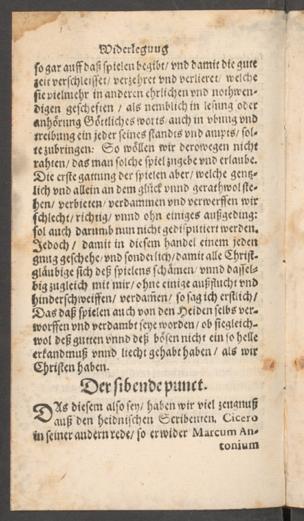 Widerlegung
so gar auff daß spielen begibt/ vnd damit die gute
zeit verschleisset/ verzehret vnd verlieret/ welche
sie vielmehr in anderen ehrlichen vnd nothwen-
digen geschefften/ als nemblich in lesung oder
anhörung Göttliches worts auch in vbung vnd
treibung ein jeder seines standts vnd ampts/ sol-
te zubringen: So wöllen wir derowegen nicht
rahten/ das man solche spiel zugebe vnd erlaube.
Die erste gattung der spielen aber/ welche genz-
lich vnd allein an dem glück vnnd gerathwol ste-
hen/ verbieten/ verdammen vnd verwerffen wir
schlecht/ richtig/ vnnd ohn einiges außgeding:
sol auch darumb nun nicht gedisputiert werden.
Jedoch/ damit in diesem handel einem jeden
gnug geschehe/ vnd sonderlich/ damit alle Christ-
gläubige sich deß spielens schämen/ vnnd dassel-
big zugleich mit mir/ ohne einige außflucht vnd
hinderschweiffen/ verdam̃en/ so sag ich erstlich/
Das daß spielen auch von den Heiden selbs ver-
worffen vnd verdambt seye worden/ ob sie gleich-
wol deß gutten vnnd deß bösen nicht ein so helle
erkandtnuß vnnd liecht gehabt haben/ als wir
Christen haben.
Der sibende punct.
DAs diesem also sey/ haben wir viel zeugnuß
auß den heidnischen Scribenten. Cicero
in seiner andern rede/ so er wider Marcum An-
tonium